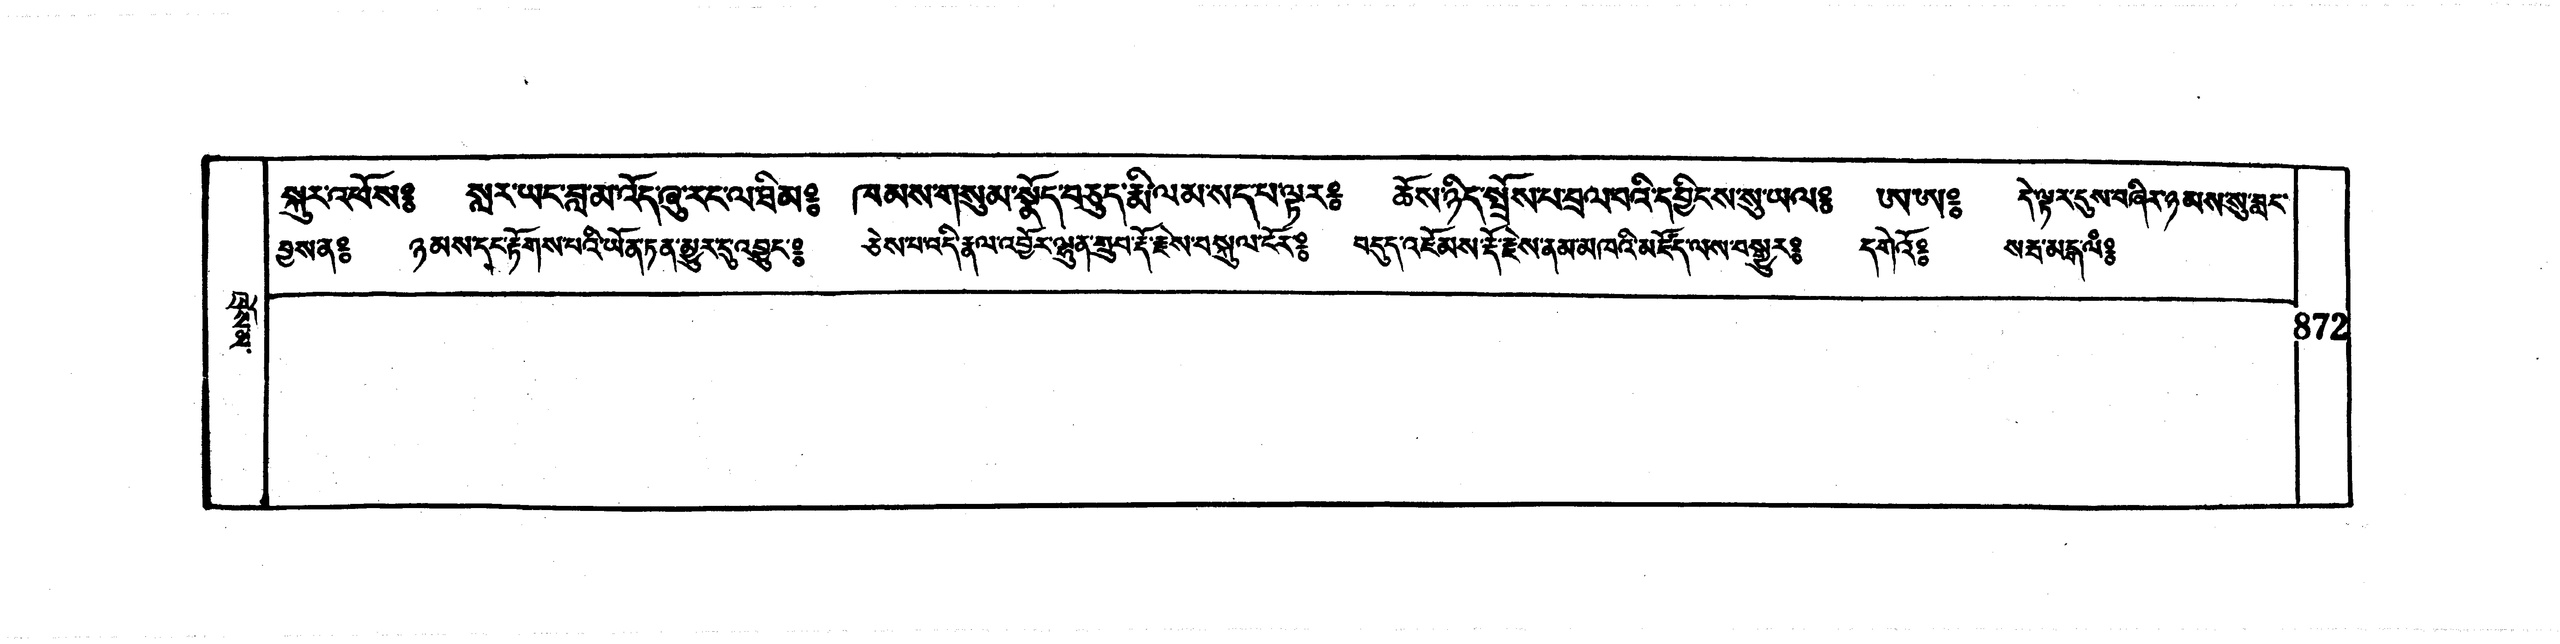 སྐུར་འཕོས༔ སླར་ཡང་བླ་མ་འོད་ཞུ་རང་ལ་ཐིམ༔ ཁམས་གསུམ་སྣོད་བཅུད་རྨི་ལམ་སད་པ་ལྟར༔ ཆོས་ཉིད་སྤྲོས་པ་བྲལ་བའི་དབྱིངས་སུ་ཡལ༔ ཨ་ཨ༔ དེ་ལྟར་དུས་བཞིར་ཉམས་སུ་བླང་
བྱས་ན༔ ཉམས་དང་རྟོགས་པའི་ཡོན་ཏན་མྱུར་དུ་འབྱུང་༔ ཅེས་པ་འདི་རྣལ་འབྱོར་ལྷུན་གྲུབ་རྡོ་རྗེས་བསྐུལ་ངོར༔ བདུད་འཇོམས་རྡོ་རྗེས་ནམ་མཁའི་མཛོད་ལས་བསྒྱུར༔ དགེའོ༔ སརྦ་མངྒ་ལཾ༔
872